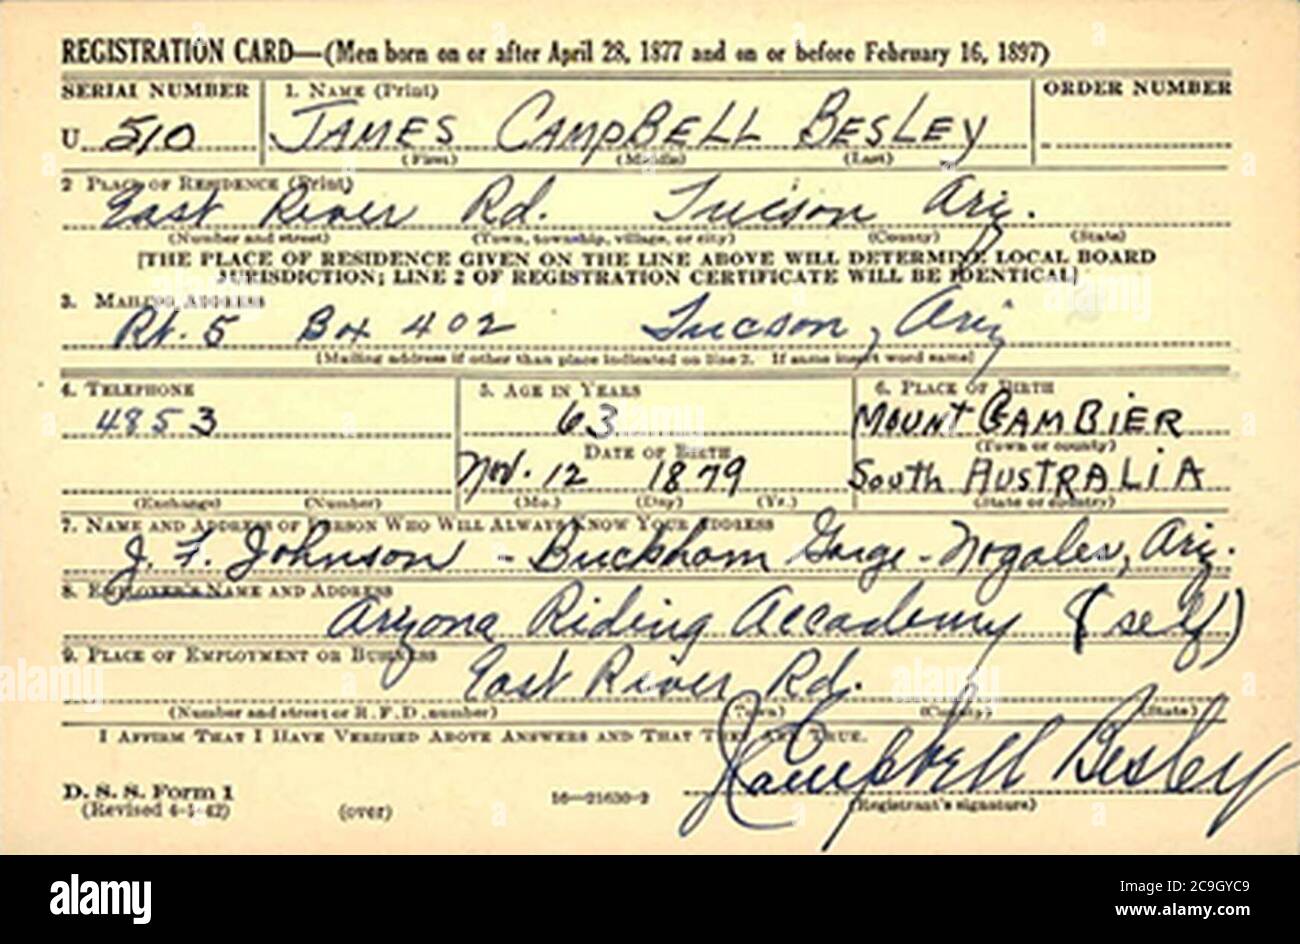 REGISTRATION CARD—(Men born on or after April 28, 1877 and on or before February 16, 1897)
SERIAL NUMBER 1. NAME (Print) ORDER NUMBER
U 510 JAMES CAMPBELL BESLEY
(First) (Middle) (Last)
2 PLACE OF RESIDENCE (Print)
East River Rd. Tucson Ariz.
(Number and street) (Town, township, village, or city) (County) (State)
[THE PLACE OF RESIDENCE GIVEN ON THE LINE ABOVE WILL DETERMINE LOCAL BOARD
JURISDICTION; LINE 2 OF REGISTRATION CERTIFICATE WILL BE IDENTICAL]
3. MAILING ADDRESS
Rt. 5 Box 402 Tucson, Ariz
(Mailing address if other than place indicated on line 2. If same insert word same)
4. TELEPHONE 5. AGE IN YEARS 6. PLACE OF BIRTH
4853 63 MOUNT GAMBIER
DATE OF BIRTH (Town or county)
Nov. 12 1879 South AUSTRALIA
(Exchange) (Number) (Mo.) (Day) (Yr.) (State or country)
7. NAME AND ADDRESS OF PERSON WHO WILL ALWAYS KNOW YOUR ADDRESS
J. F. Johnson - Buckham Gorge - Nogales, Ariz.
8. EMPLOYER'S NAME AND ADDRESS
Arizona Riding Accademy (self)
9. PLACE OF EMPLOYMENT OR BUSINESS
East River Rd.
(Number and street or R. F. D. number) (Town) (County) (State)
I AFFIRM THAT I HAVE VERIFIED ABOVE ANSWERS AND THAT THEY ARE TRUE.
J Campbell Besley
D. S. S. Form 1
(Revised 4-1-42) (over) 16—21630-2 (Registrant's signature)
alamy
Image ID: 2C9GYC9
www.alamy.com